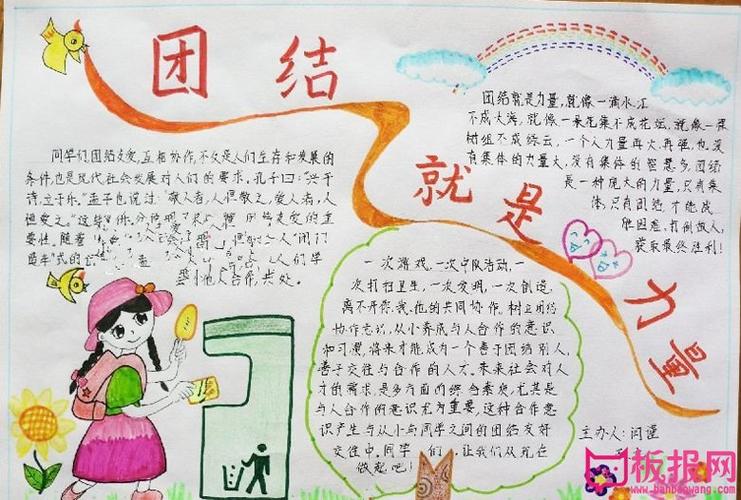 团结
就是
力量
同学们团结友爱,互相协作,不仅是人们生存和发展的
条件,也是现代社会发展对人们的要求。孔子曰:"兴于
诗,立于乐。"孟子也说过:"敬人者,人恒敬之,爱人者,人
恒爱之。"这些
爱的重
要性。随着
人"闭门
造车"式的
们学
会和他人合作,共处。
团结就是力量,就像一滴水汇
不成大海,就像一朵花集不成花坛,就像一棵
树组不成绿云,一个人力量再大,再强,也没
有集体的力量大,没有集体的智慧多。团结
是一种庞大的力量,只有集
体,只有团结,才能战
胜困难,打倒敌人,
获取最终胜利!
一次游戏,一次中队活动,一
次打扫卫生,一次发明,一次创造,
离不开你、我、他的共同协作。树立团结
协作意识,从小养成与人合作的意识
和习惯,将来才能成为一个善于团结别人,
善于交往与合作的人才。未来社会对人
才的需求,是多方面的综合素质,尤其是
与人合作的意识尤为重要,这种合作意
识产生与从小与同学之间的团结友好
交往中,同学们,让我们从现在
做起吧!
主办人:闫谨
板报网
www.banbaowang.com